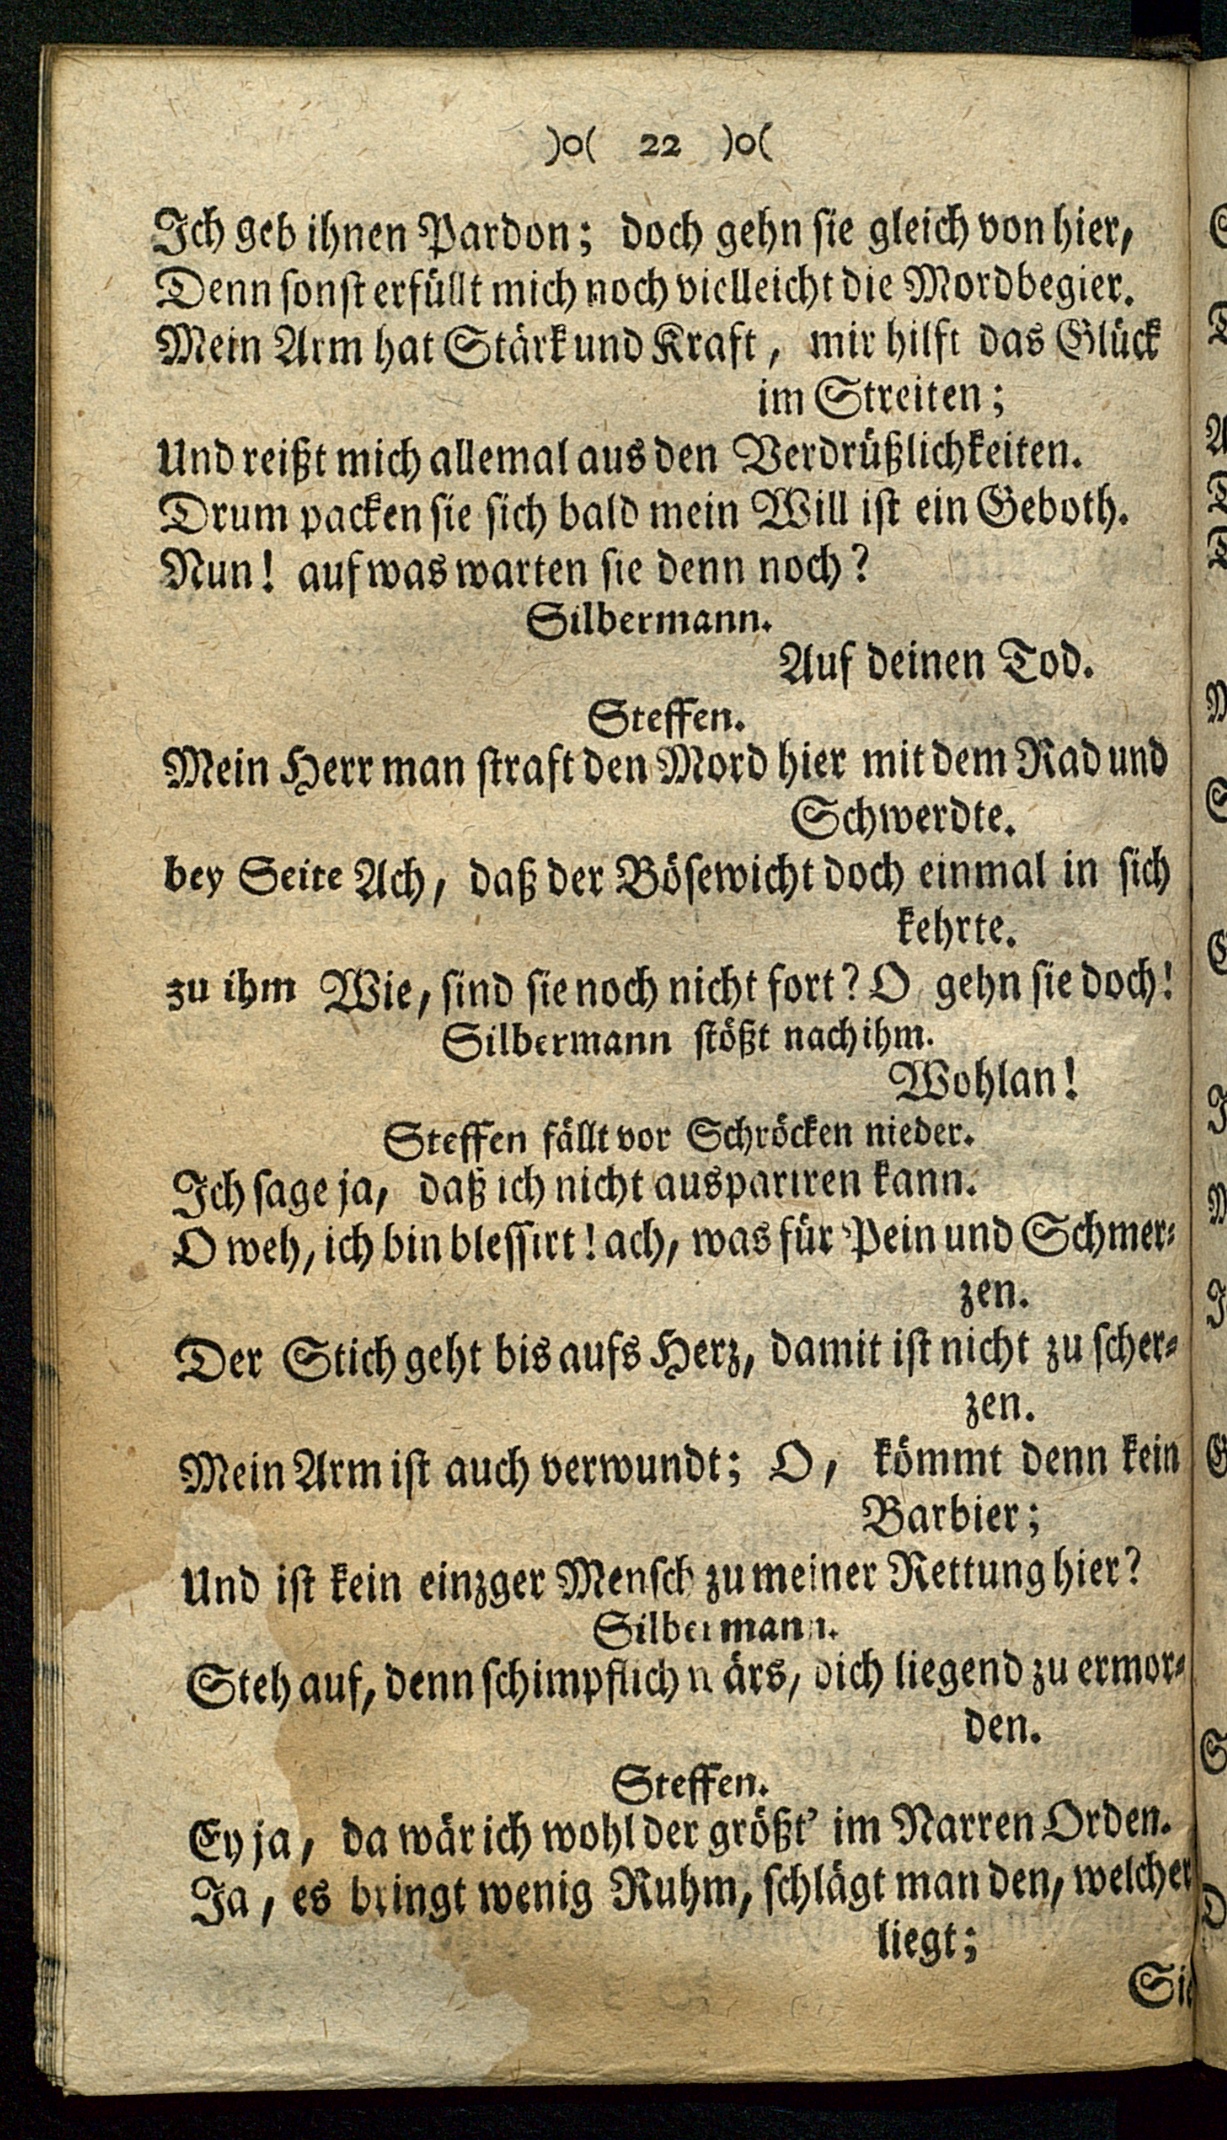 )o( 22 )o(
Ich geb ihnen Pardon; doch gehn sie gleich von hier,
Denn sonst erfüllt mich noch vielleicht die Mordbegier.
Mein Arm hat Stärk und Kraft, mir hilft das Glück
im Streiten;
Und reißt mich allemal aus den Verdrüßlichkeiten.
Drum packen sie sich bald mein Will ist ein Geboth.
Nun! auf was warten sie denn noch?
Silbermann.
Auf deinen Tod.
Steffen.
Mein Herr man straft den Mord hier mit dem Rad und
Schwerdte.
bey Seite Ach, daß der Bösewicht doch einmal in sich
kehrte.
zu ihm Wie, sind sie noch nicht fort? O gehn sie doch!
Silbermann stößt nach ihm.
Wohlan!
Steffen fällt vor Schröcken nieder.
Ich sage ja, daß ich nicht auspariren kann.
O weh, ich bin blessirt! ach, was für Pein und Schmer-
zen.
Der Stich geht bis aufs Herz, damit ist nicht zu scher-
zen.
Mein Arm ist auch verwundt; O, kömmt denn kein
Barbier;
Und ist kein einzger Mensch zu meiner Rettung hier?
Silbermann.
Steh auf, denn schimpflich wärs, dich liegend zu ermor-
den.
Steffen.
Ey ja, da wär ich wohl der größt' im Narren Orden.
Ja, es bringt wenig Ruhm, schlägt man den, welcher
liegt;
Sie